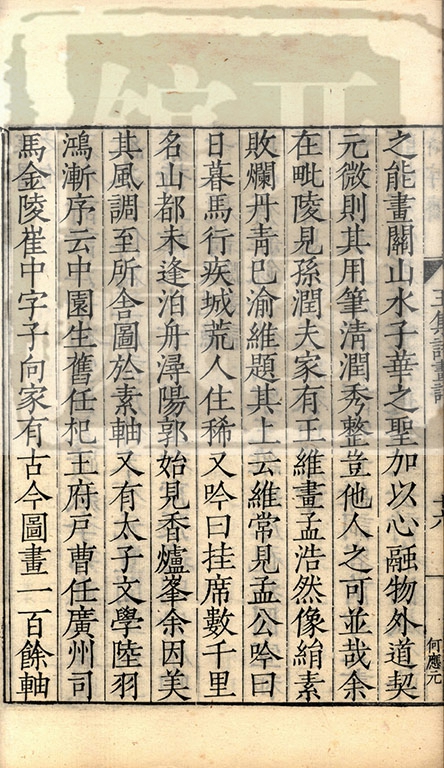 之能畫關山水子華之聖加以心融物外道契
元微則其用筆清潤秀整豈他人之可並哉余
在毗陵見孫潤夫家有王維畫孟浩然像絹素
敗爛丹青已渝維題其上云維常見孟公吟曰
日暮馬行疾城荒人住稀又吟曰挂席數千里
名山都未逢泊舟潯陽郭始見香爐峯余因美
其風調至所舍圖於素軸又有太子文學陸羽
鴻漸序云中園生舊任杞王府戶曹任廣州司
馬金陵崔中字子向家有古今圖畫一百餘軸
何應元